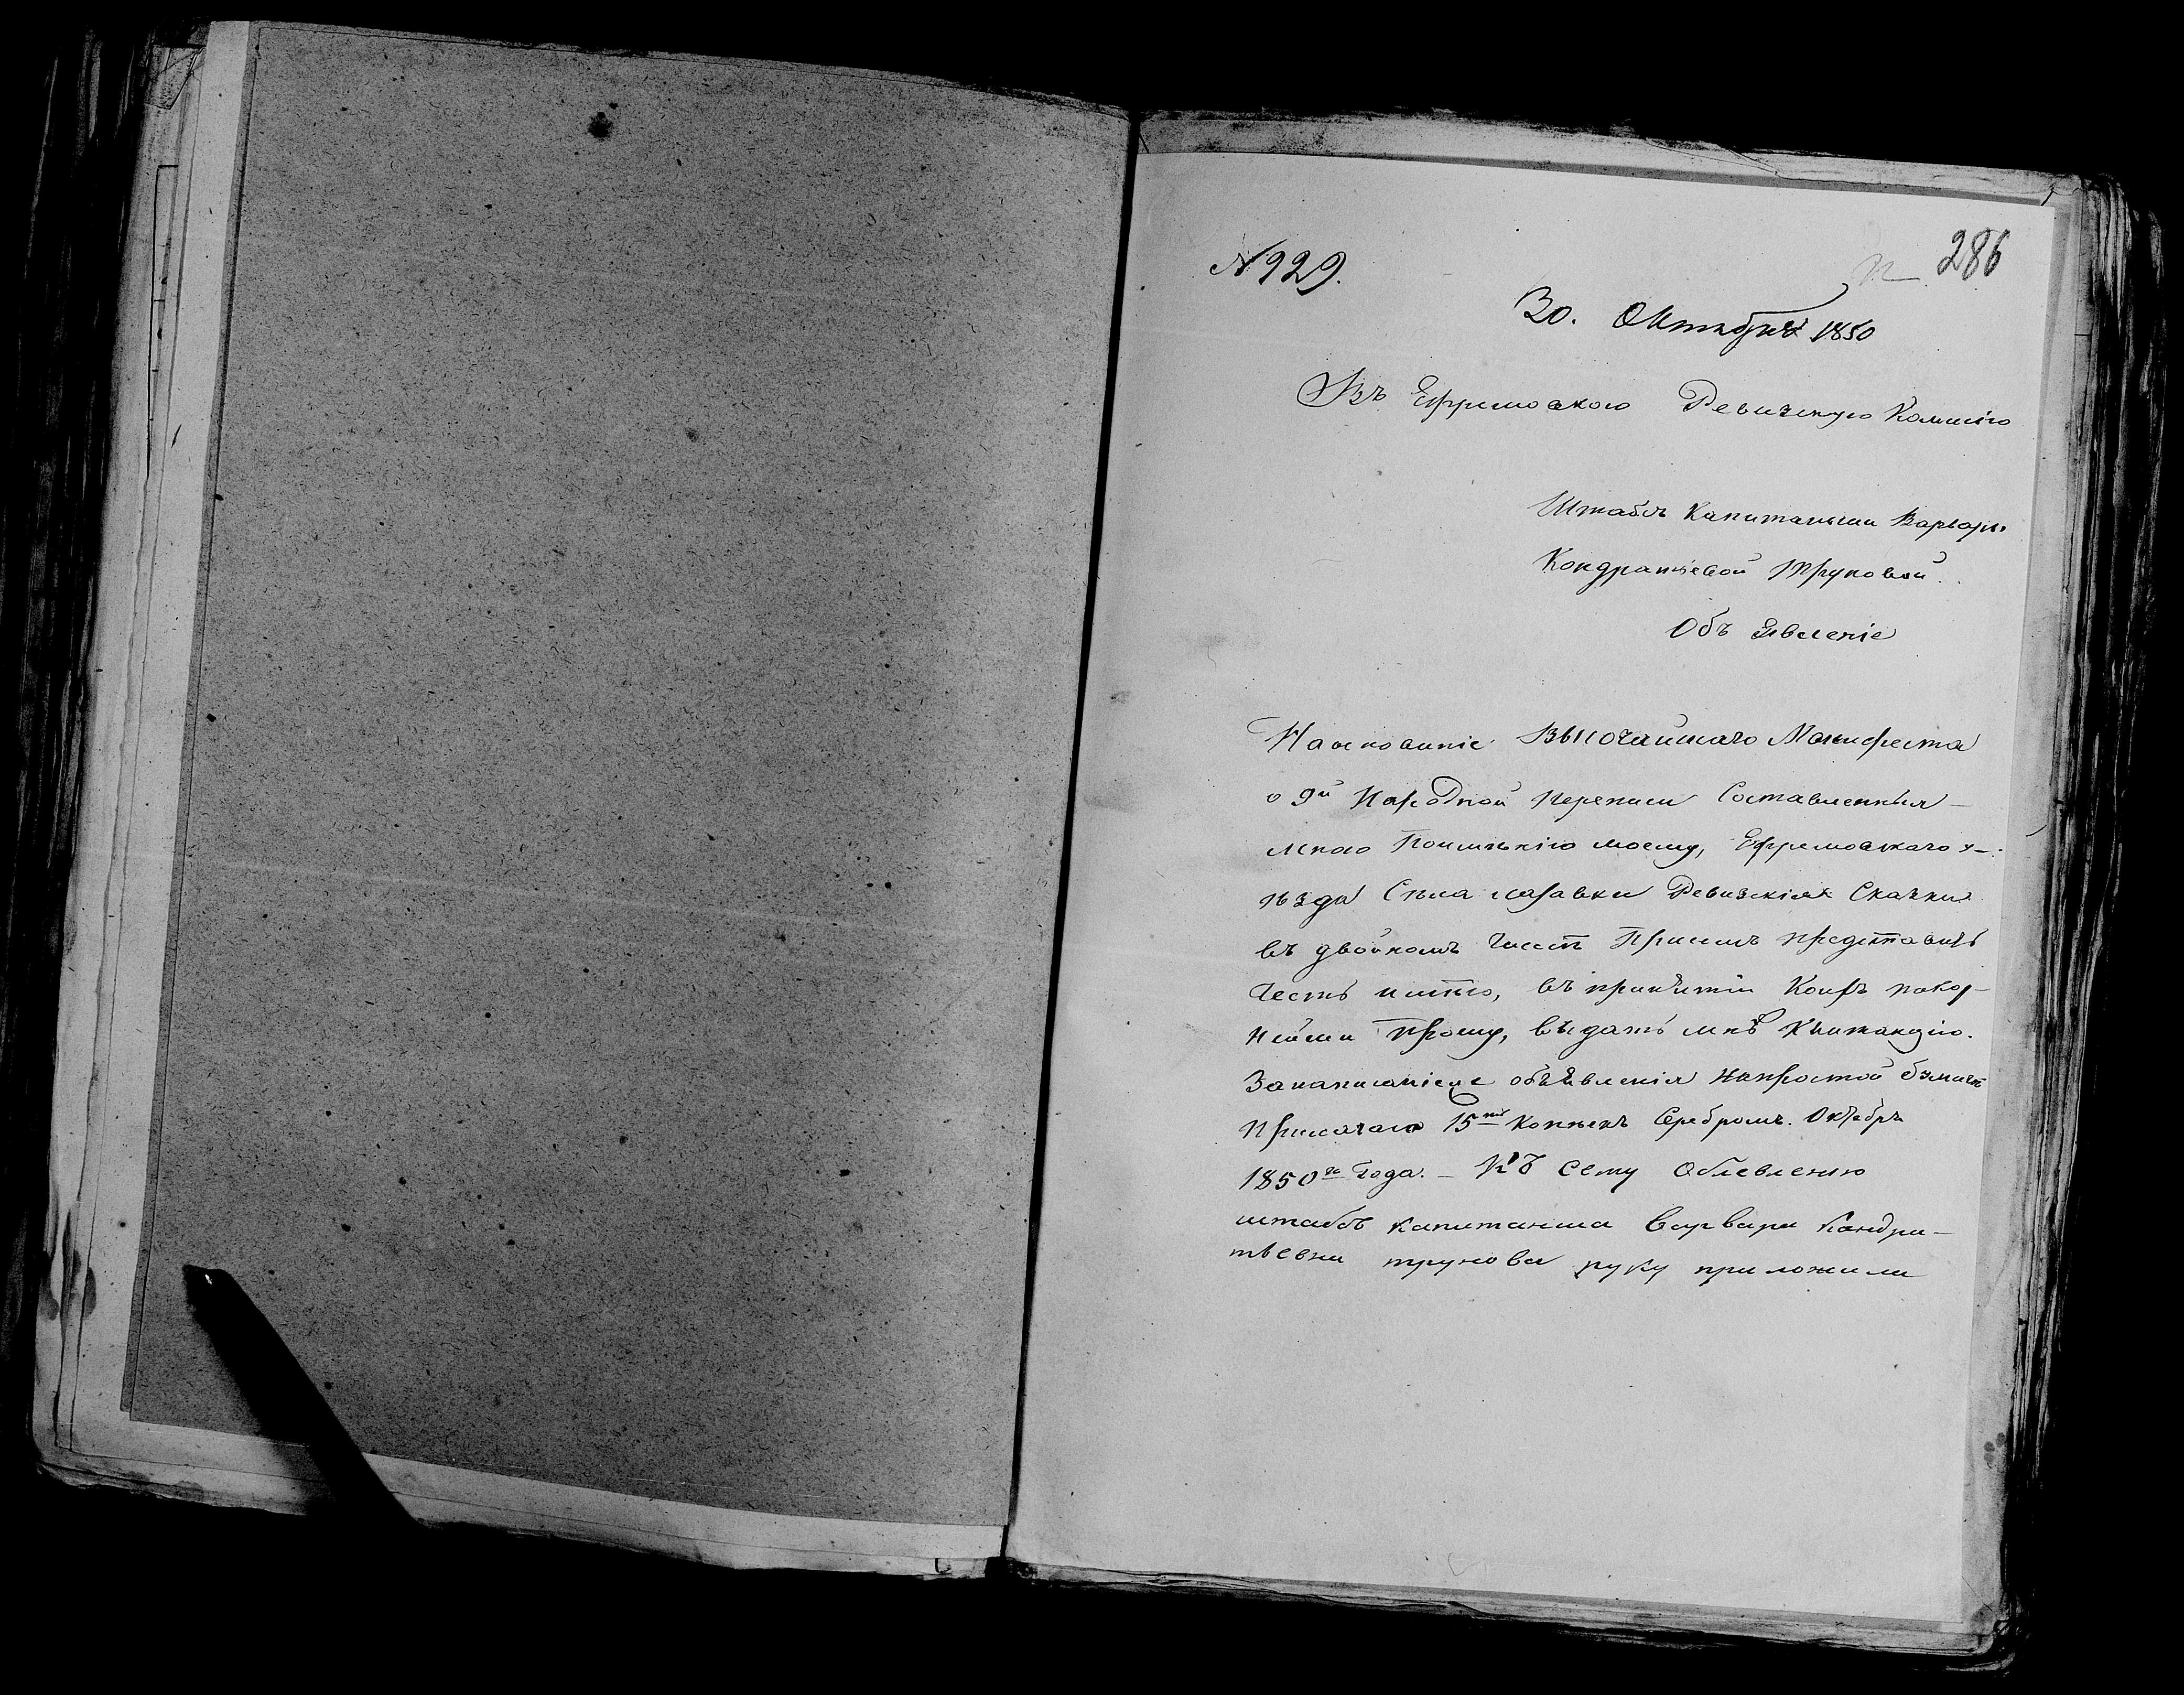 № 929.
286
30. Октября 1850
Въ Ефремовскою Ревизскую Комисію
Штабсъ Капитанши Варвары
Кондратьевой Труновой.
Объ явленіе
Наоснованіе Высочайшаго Манифеста
о 9й Народной переписи Составленныя
мною Поимѣнію моему, Ефремовскаго у-
ѣзда Села Ревизскія Сказки
въ двойномъ числѣ Присемъ представить
Честь имѣю, въ принятіи Коихъ покор-
нѣйши прошу, выдать мнѣ Квитанцію.
Занаписаніе объявленія Напростой бумагѣ
Прилагаю 15ть Копѣекъ Серебромъ. Октебръ
1850го Года. – Къ сему Обявлению
штабсъ капитанша Варвара Кондра-
тьевна трунова руку приложила